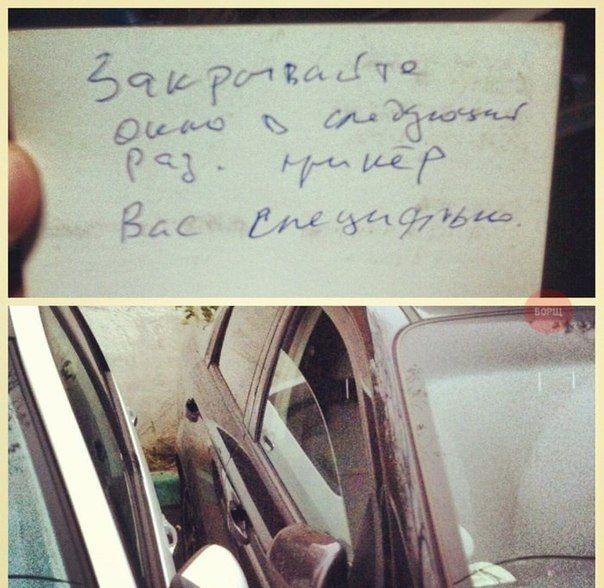 Закрывайте
окно в следующий
раз. припёр
Вас специально.
БОРЩ